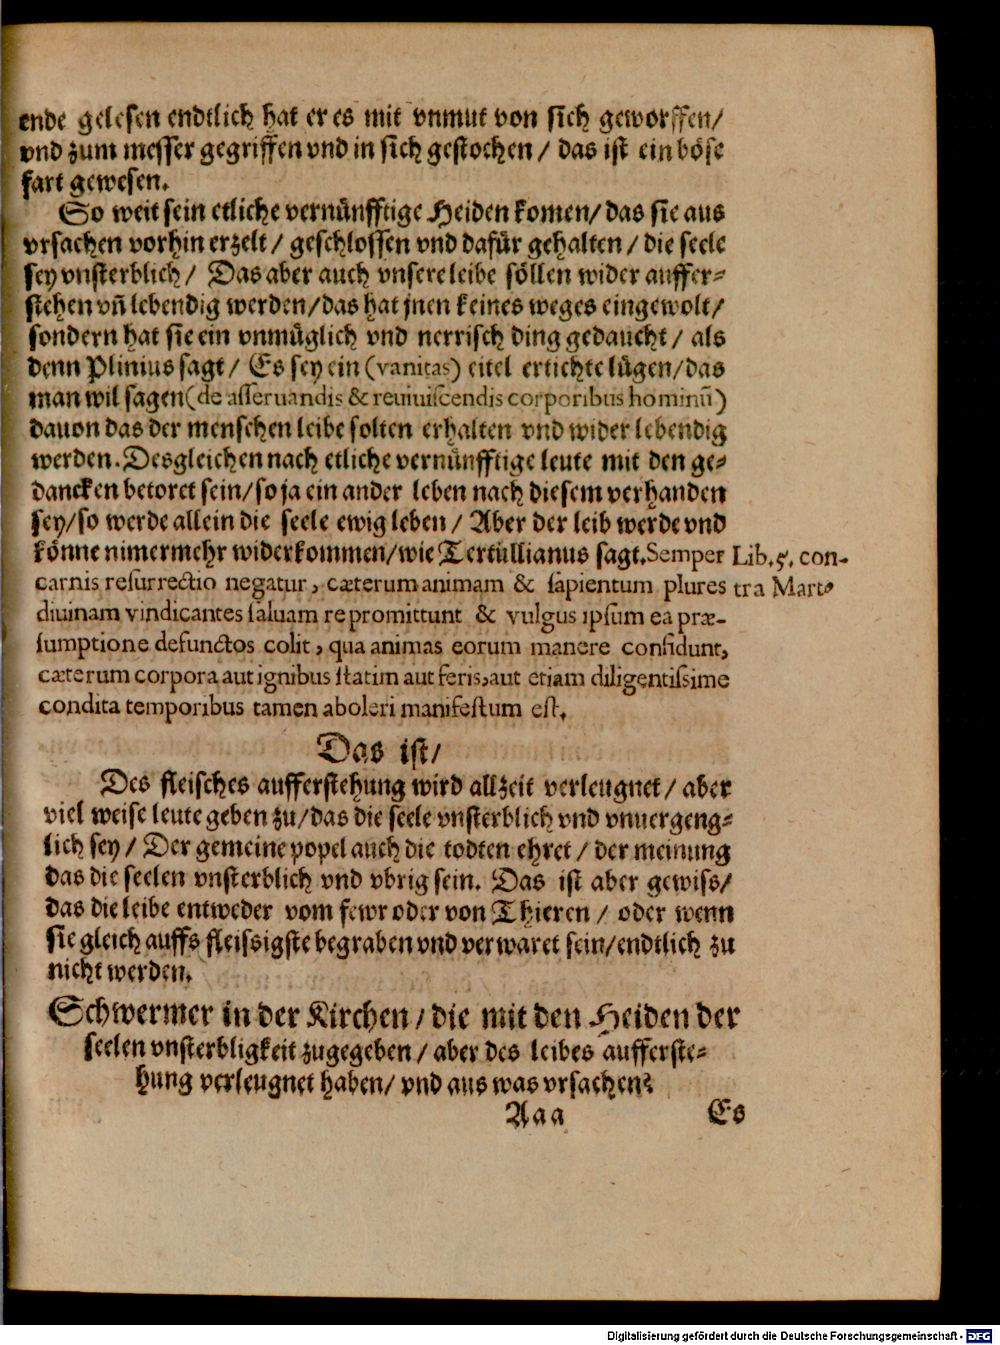 ende gelesen endtlich hat er es mit vnmut von sich geworffen/
vnd zum messer gegriffen vnd in sich gestochen / das ist ein böse
fart gewesen.
So weit sein etliche vernünfftige Heiden komen/ das sie aus
vrsachen vorhin erzelt / geschlossen vnd dafür gehalten / die seele
sey vnsterblich / Das aber auch vnsere leibe söllen wider auffer-
stehen vn̄ lebendig werden/das hat jnen keines weges eingewolt/
sondern hat sie ein vnmüglich vnd nerrisch ding gedaucht / als
denn Plinius sagt / Es sey ein (vanitas) eitel ertichte lügen/das
man wil sagen (de asseruandis & reuiuiscendis corporibus hominū)
dauon das der menschen leibe solten erhalten vnd wider lebendig
werden. Desgleichen nach etliche vernünfftige leute mit den ge-
dancken betoret sein/so ja ein ander leben nach diesem verhanden
sey/so werde allein die seele ewig leben / Aber der leib werde vnd
könne nimermehr widerkommen/wie Tertullianus sagt. Semper
Lib. 5. con-
tra Mart.
carnis resurrectio negatur, cæterum animam & sapientum plures
diuinam vindicantes saluam repromittunt & vulgus ipsum ea præ-
sumptione defunctos colit, qua animas eorum manere confidunt,
cæterum corpora aut ignibus statim aut feris, aut etiam diligentissime
condita temporibus tamen aboleri manifestum est.
Das ist/
Des fleisches aufferstehung wird allzeit verleugnet / aber
viel weise leute geben zu/das die seele vnsterblich vnd vnuergeng-
lich sey / Der gemeine popel auch die todten ehret / der meinung
das die seelen vnsterblich vnd vbrig sein. Das ist aber gewiss/
das die leibe entweder vom fewr oder von Thieren / oder wenn
sie gleich auffs fleissigste begraben vnd verwaret sein/endtlich zu
nicht werden.
Schwermer in der Kirchen / die mit den Heiden der
seelen vnsterbligkeit zugegeben / aber des leibes aufferste-
hung verleugnet haben/ vnd aus was vrsachen?
Aaa Es
Digitalisierung gefördert durch die Deutsche Forschungsgemeinschaft - DFG